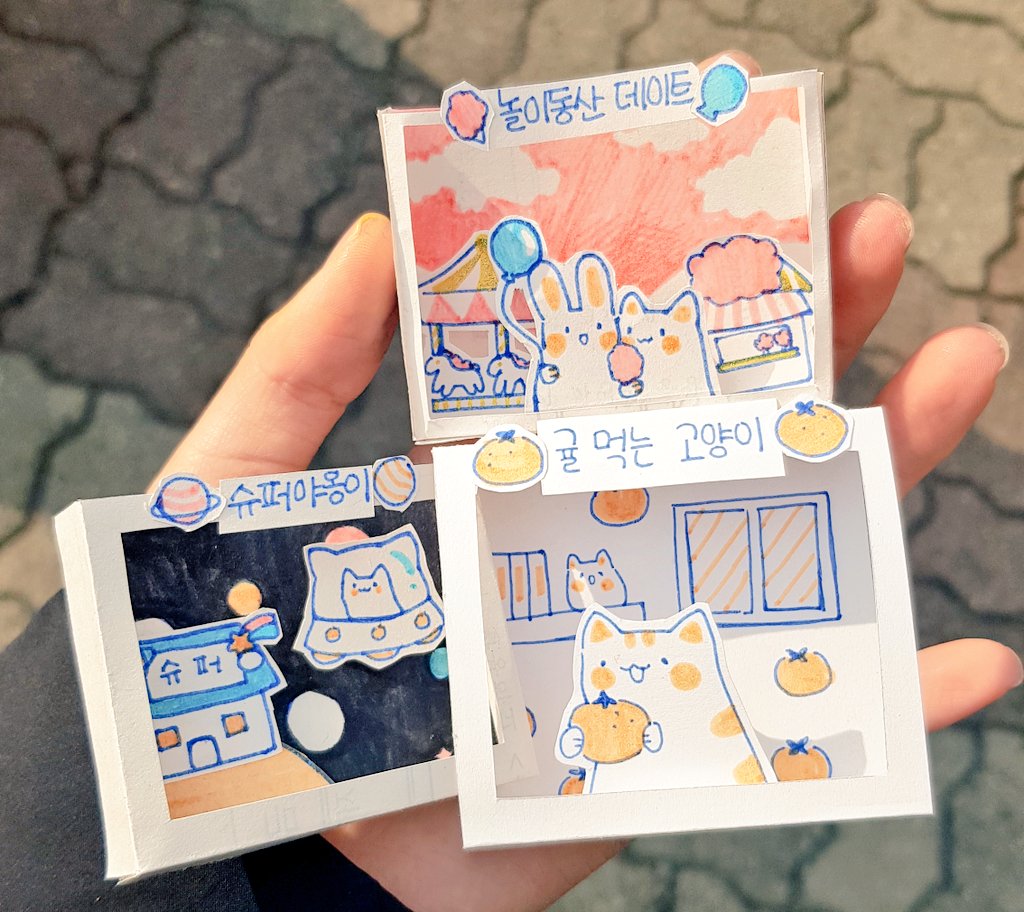 놀이동산 데이트
귤 먹는 고양이
슈퍼야옹이
슈퍼